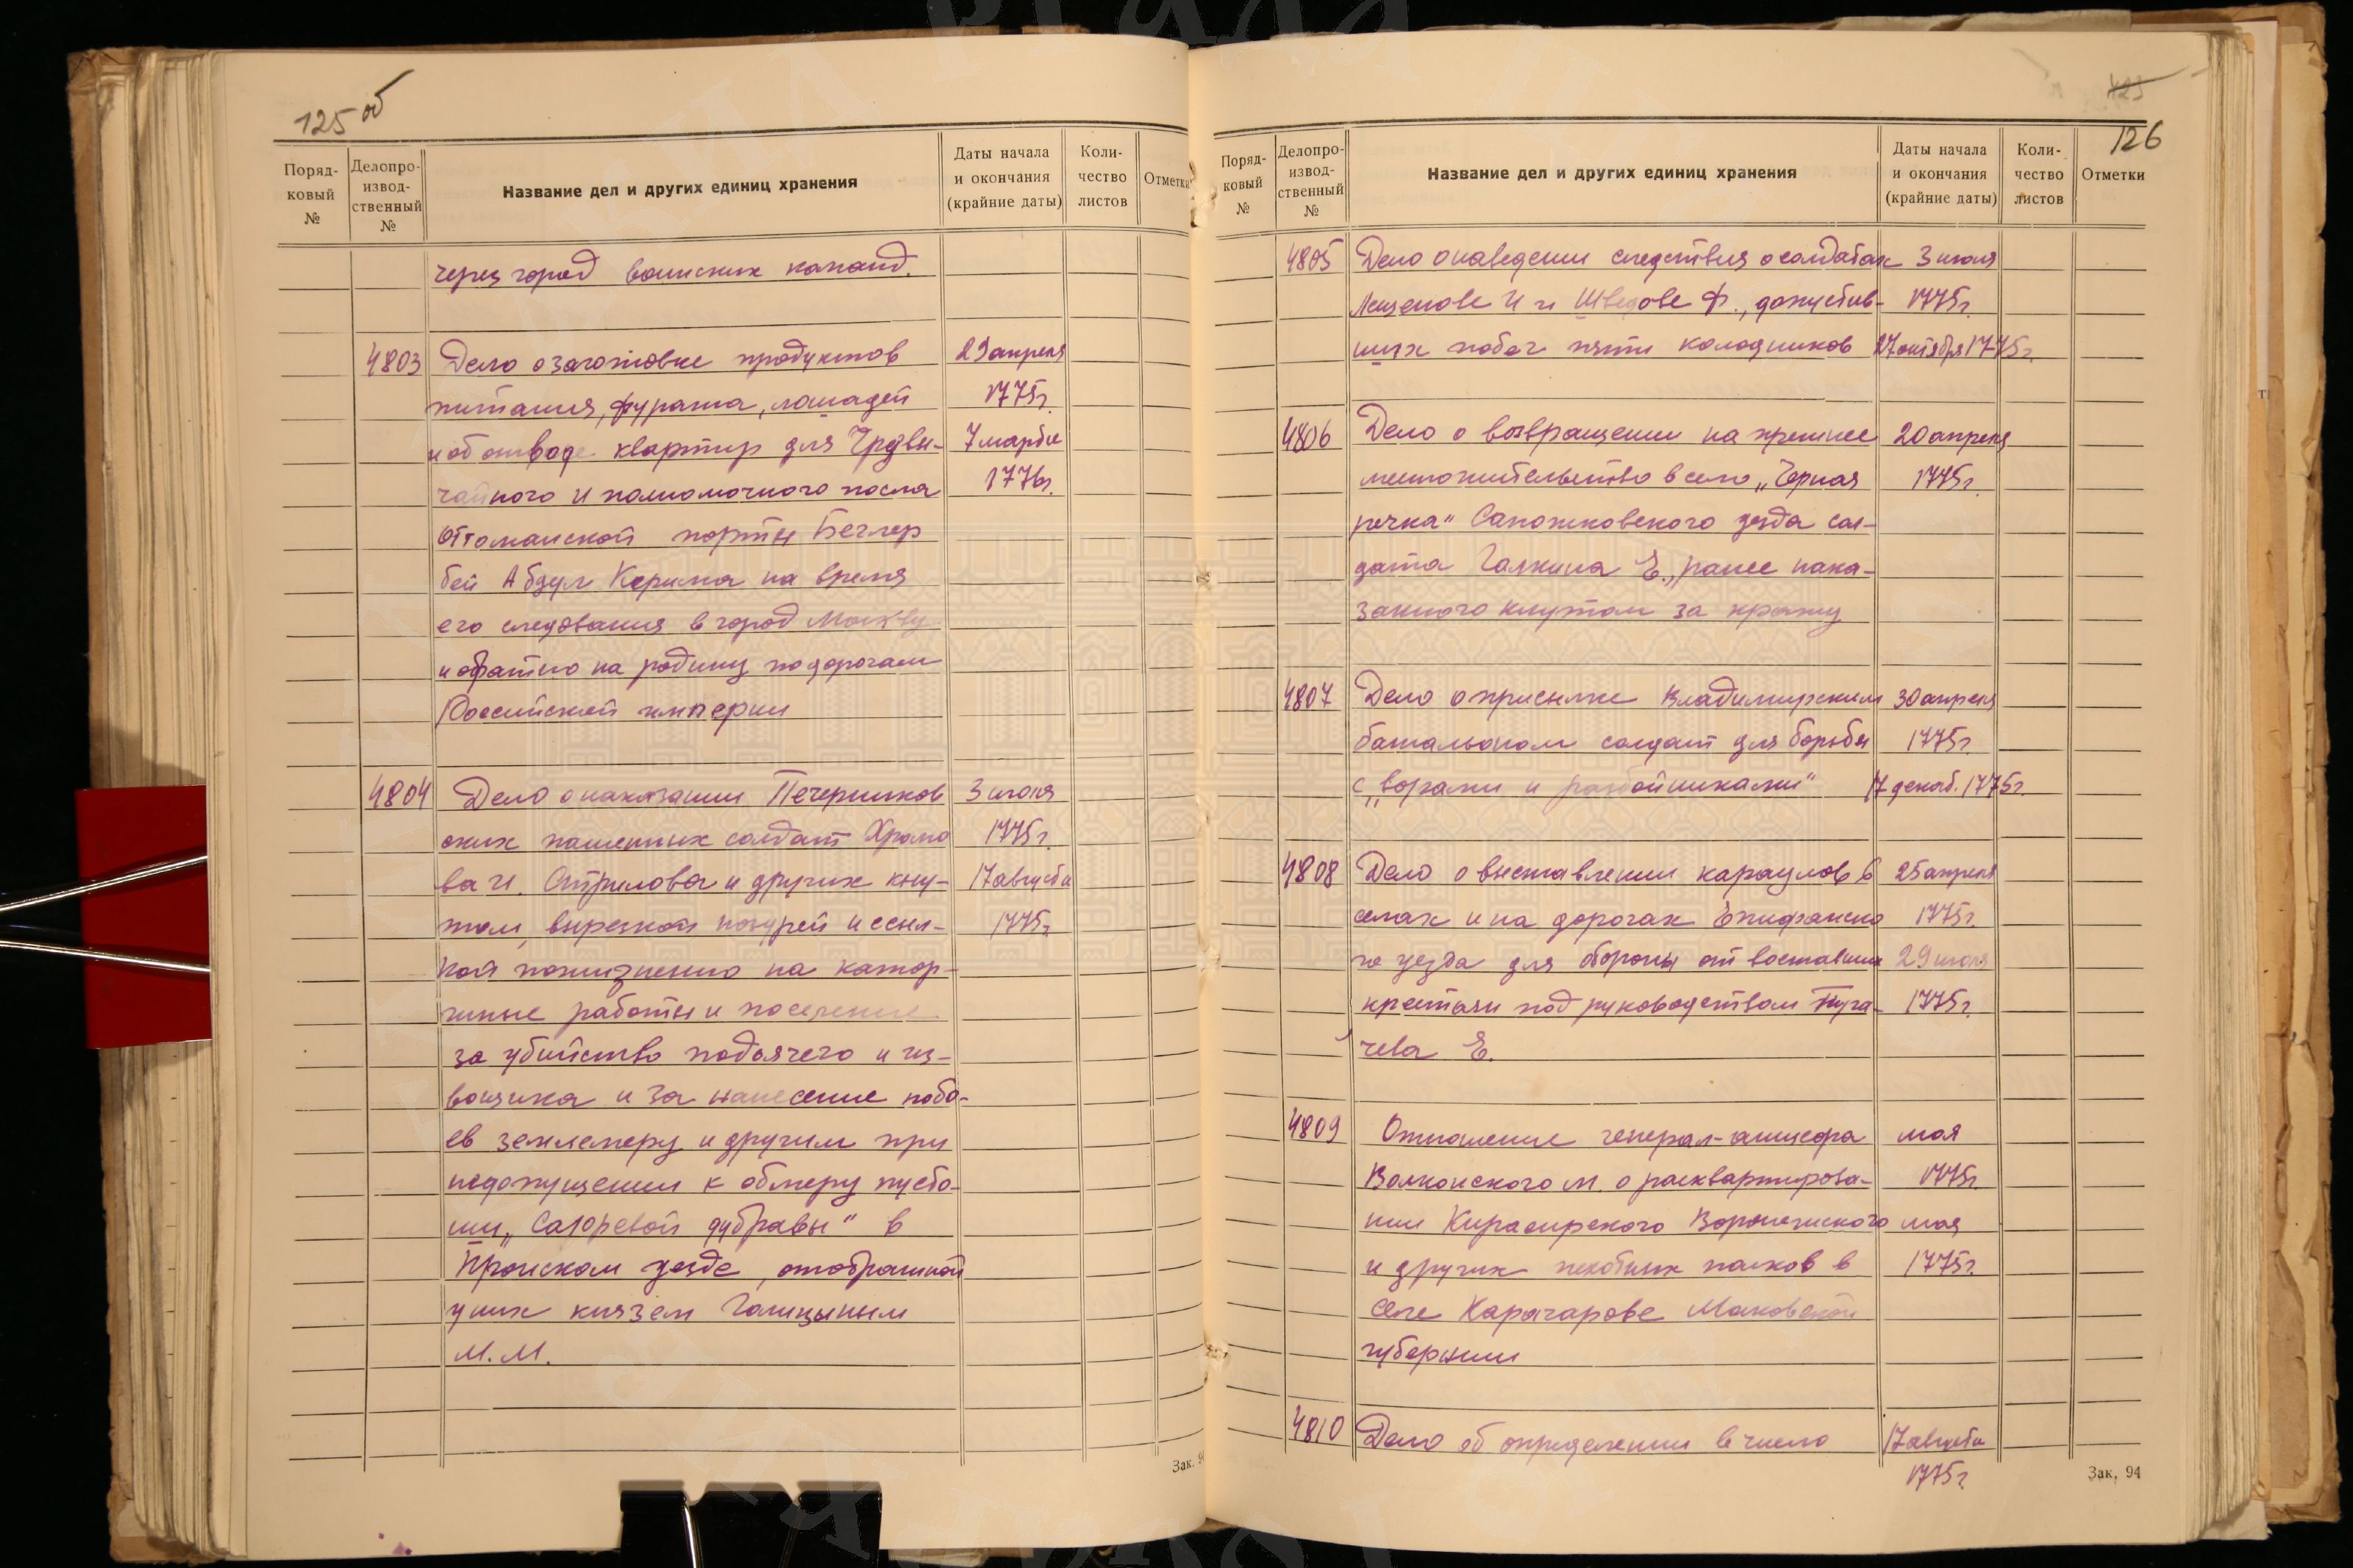 125 об
Поряд-
ковый
№
Делопро-
извод-
ственный
№
Название дел и других единиц хранения
Даты начала
и окончания
(крайние даты)
Коли-
чество
листов
Отметки
через город воинских команд.
4803 Дело о заготовке продуктов 29 апреля
питания, фуража, лошадей 1775г.
и об отводе квартир для Чрезвы- 7 марта
чайного и полномочного посла 1776г.
Оттоманской порты Беглер
бей Абдул Керима на время
его следования в город Москву
и обратно на родину по дорогам
Российской империи
4804 Дело о наказании Печерников 3 июля
ских пашенных солдат Храмо 1775г.
ва И. Стрилова и других кну- 17 августа
том, вырезкой ноздрей и ссыл- 1775г.
кой пожизненно на катор-
жные работы и поселение
за убийство подьячего и из-
вощика и за нанесение побо-
ев землемеру и другим при
недопущении к обмеру пусто-
ши „Сазоревой дубравы" в
Пронском уезде, отобранной
у них князем Голицыным
М.М.
Зак. 9
126
Поряд-
ковый
№
Делопро-
извод-
ственный
№
Название дел и других единиц хранения
Даты начала
и окончания
(крайние даты)
Коли-
чество
листов
Отметки
4805 Дело о наведении следствия о солдатах 3 июля
И и Шведове Ф., допустив- 1775г.
ших побег пяти колодников 27 октября 1775г.
4806 Дело о возвращении на прежнее 20 апреля
местожительство в село „Черная 1775г.
речка" Сапожковского уезда сол-
дата Галкина Е., ранее нака-
занного кнутом за кражу
4807 Дело о присылке Владимирским 30 апреля
батальоном солдат для борьбы 1775г.
с „ворами и разбойниками" 17 декаб. 1775г.
4808 Дело о выставлении караулов в 25 апреля
селах и на дорогах Епифанско 1775г.
го уезда для обороны от восставших 29 июля
крестьян под руководством Пуга- 1775г.
чева Е.
4809 Отношение генерал-аншефа мая
Волконского М. о расквартирова- 1775г.
нии Кирасирского Воронежского мая
и других пехотных полков в 1775г.
селе Карачарове Московской
губернии
4810 Дело об определении в число 17 августа
1775г.
Зак. 94